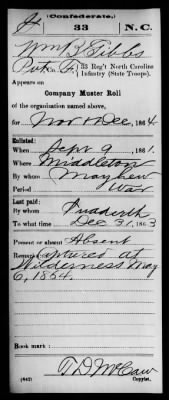 (Confederate.)
33 N.C.
Wm B. Gibbs
Pvt, Co. F, 33 Reg't North Carolina
Infantry (State Troops).
Appears on
Company Muster Roll
of the organization named above,
for Nov & Dec, 1864.
Enlisted:
When Sept 9, 1861.
Where Middleton
By whom Mayhew
Period War
Last paid:
By whom
To what time Dec 31, 1863
Present or absent Absent
Remarks: Captured at
Wilderness May
6, 1864.
Book mark:
T. D. McCaw
(642) Copyist.